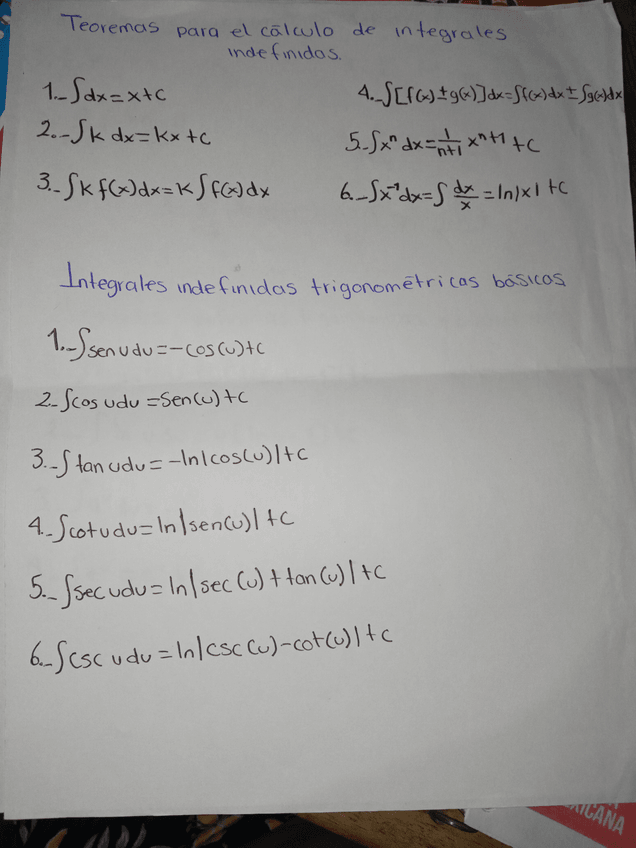 Teoremas para el cálculo de integrales
indefinidas.
1.- ∫dx=x+c
4.- ∫[f(x)±g(x)]dx=∫f(x)dx±∫g(x)dx
2.- ∫k dx=kx+c
5.- ∫xⁿ dx=1/(n+1) xⁿ⁺¹+c
3.- ∫k f(x)dx=k∫f(x)dx
6.- ∫x⁻¹dx=∫dx/x=ln|x|+c
Integrales indefinidas trigonométricas básicos
1.- ∫sen u du=-cos(u)+c
2.- ∫cos u du=Sen(u)+c
3.- ∫tan u du=-ln|cos(u)|+c
4.- ∫cot u du=ln|sen(u)|+c
5.- ∫sec u du=ln|sec(u)+tan(u)|+c
6.- ∫csc u du=ln|csc(u)-cot(u)|+c